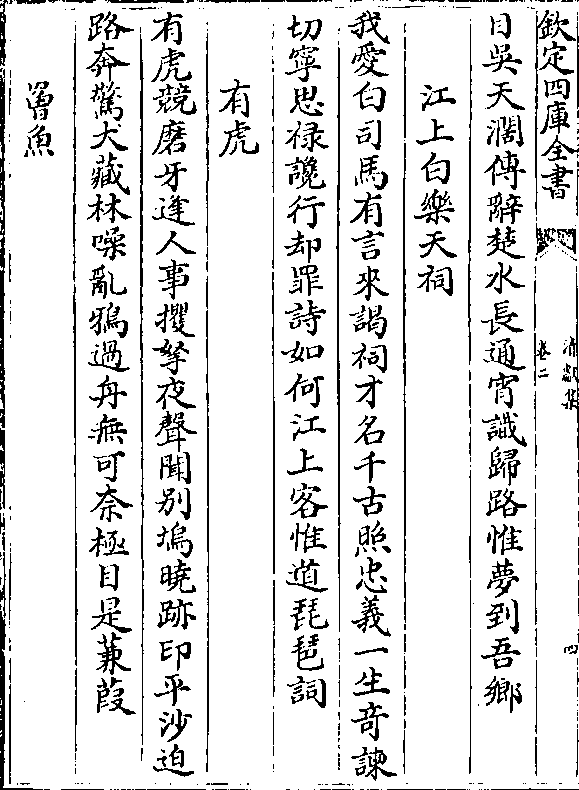 欽定四庫全書
清獻集
卷二
四
目吳天濶傳辭楚水長通宵識歸路惟夢到吾鄉
江上白樂天祠
我愛白司馬有言來謁祠才名千古照忠義一生竒諫
切寧思禄讒行却罪詩如何江上客惟道琵琶詞
有虎
有虎競磨牙逢人事攫拏夜聲聞别塢曉跡印平沙迫
路奔驚犬藏林噪亂鴉過舟無可奈極目是蒹葭
罾魚